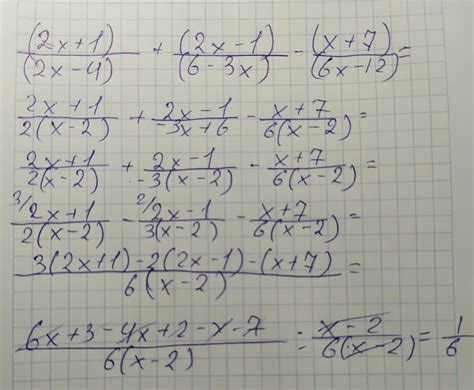 (2x+1)/(2x-4) + (2x-1)/(6-3x) - (x+7)/(6x-12) =
2x+1/2(x-2) + 2x-1/-3x+6 - x+7/6(x-2) =
2x+1/2(x-2) + 2x-1/-3(x-2) - x+7/6(x-2) =
3/ 2x+1/2(x-2) - 2/ 2x-1/3(x-2) - x+7/6(x-2) =
3(2x+1)-2(2x-1)-(x+7)/6(x-2) =
6x+3-4x+2-x-7/6(x-2) = x-2/6(x-2) = 1/6